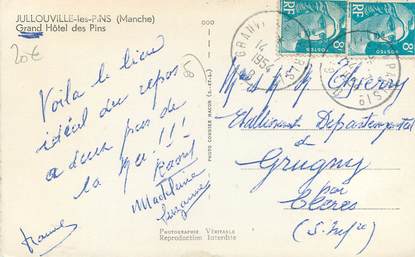 JULLOUVILLE-les-PINS (Manche)
Grand Hôtel des Pins
20€
Voila le lieu
idéal du repos
a deux pas de
la mer!!!
Raoul
Madeleine
Suzanne
PHOTOGRAPHIE VÉRITABLE
Reproduction Interdite
PHOTO COMBIER MACON
GRANV
14
1954
RF
POSTES
8F
RF
POSTES
8F
Mr & Mme Thierry
Etablissement Départemental
à
Grugny
par
Clères
(S. Infre)